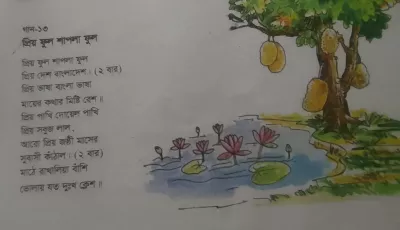 গান-১৩
প্রিয় ফুল শাপলা ফুল
প্রিয় ফুল শাপলা ফুল
প্রিয় দেশ বাংলাদেশ। (২ বার)
প্রিয় ভাষা বাংলা ভাষা
মায়ের কথার মিষ্টি রেশ॥
প্রিয় পাখি দোয়েল পাখি
প্রিয় সবুজ লাল,
আরো প্রিয় জষ্ঠী মাসের
সুবাসী কাঁঠাল। (২ বার)
মাঠে রাখালিয়া বাঁশি
ভোলায় যত দুঃখ ক্লেশ॥